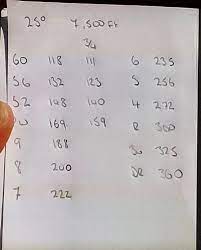 25° 7,500 Ft
3G
60 118 111 6 235
56 132 123 5 256
52 148 140 4 272
W 169 159 R 300
9 188 3G 325
8 200 DR 360
7 222